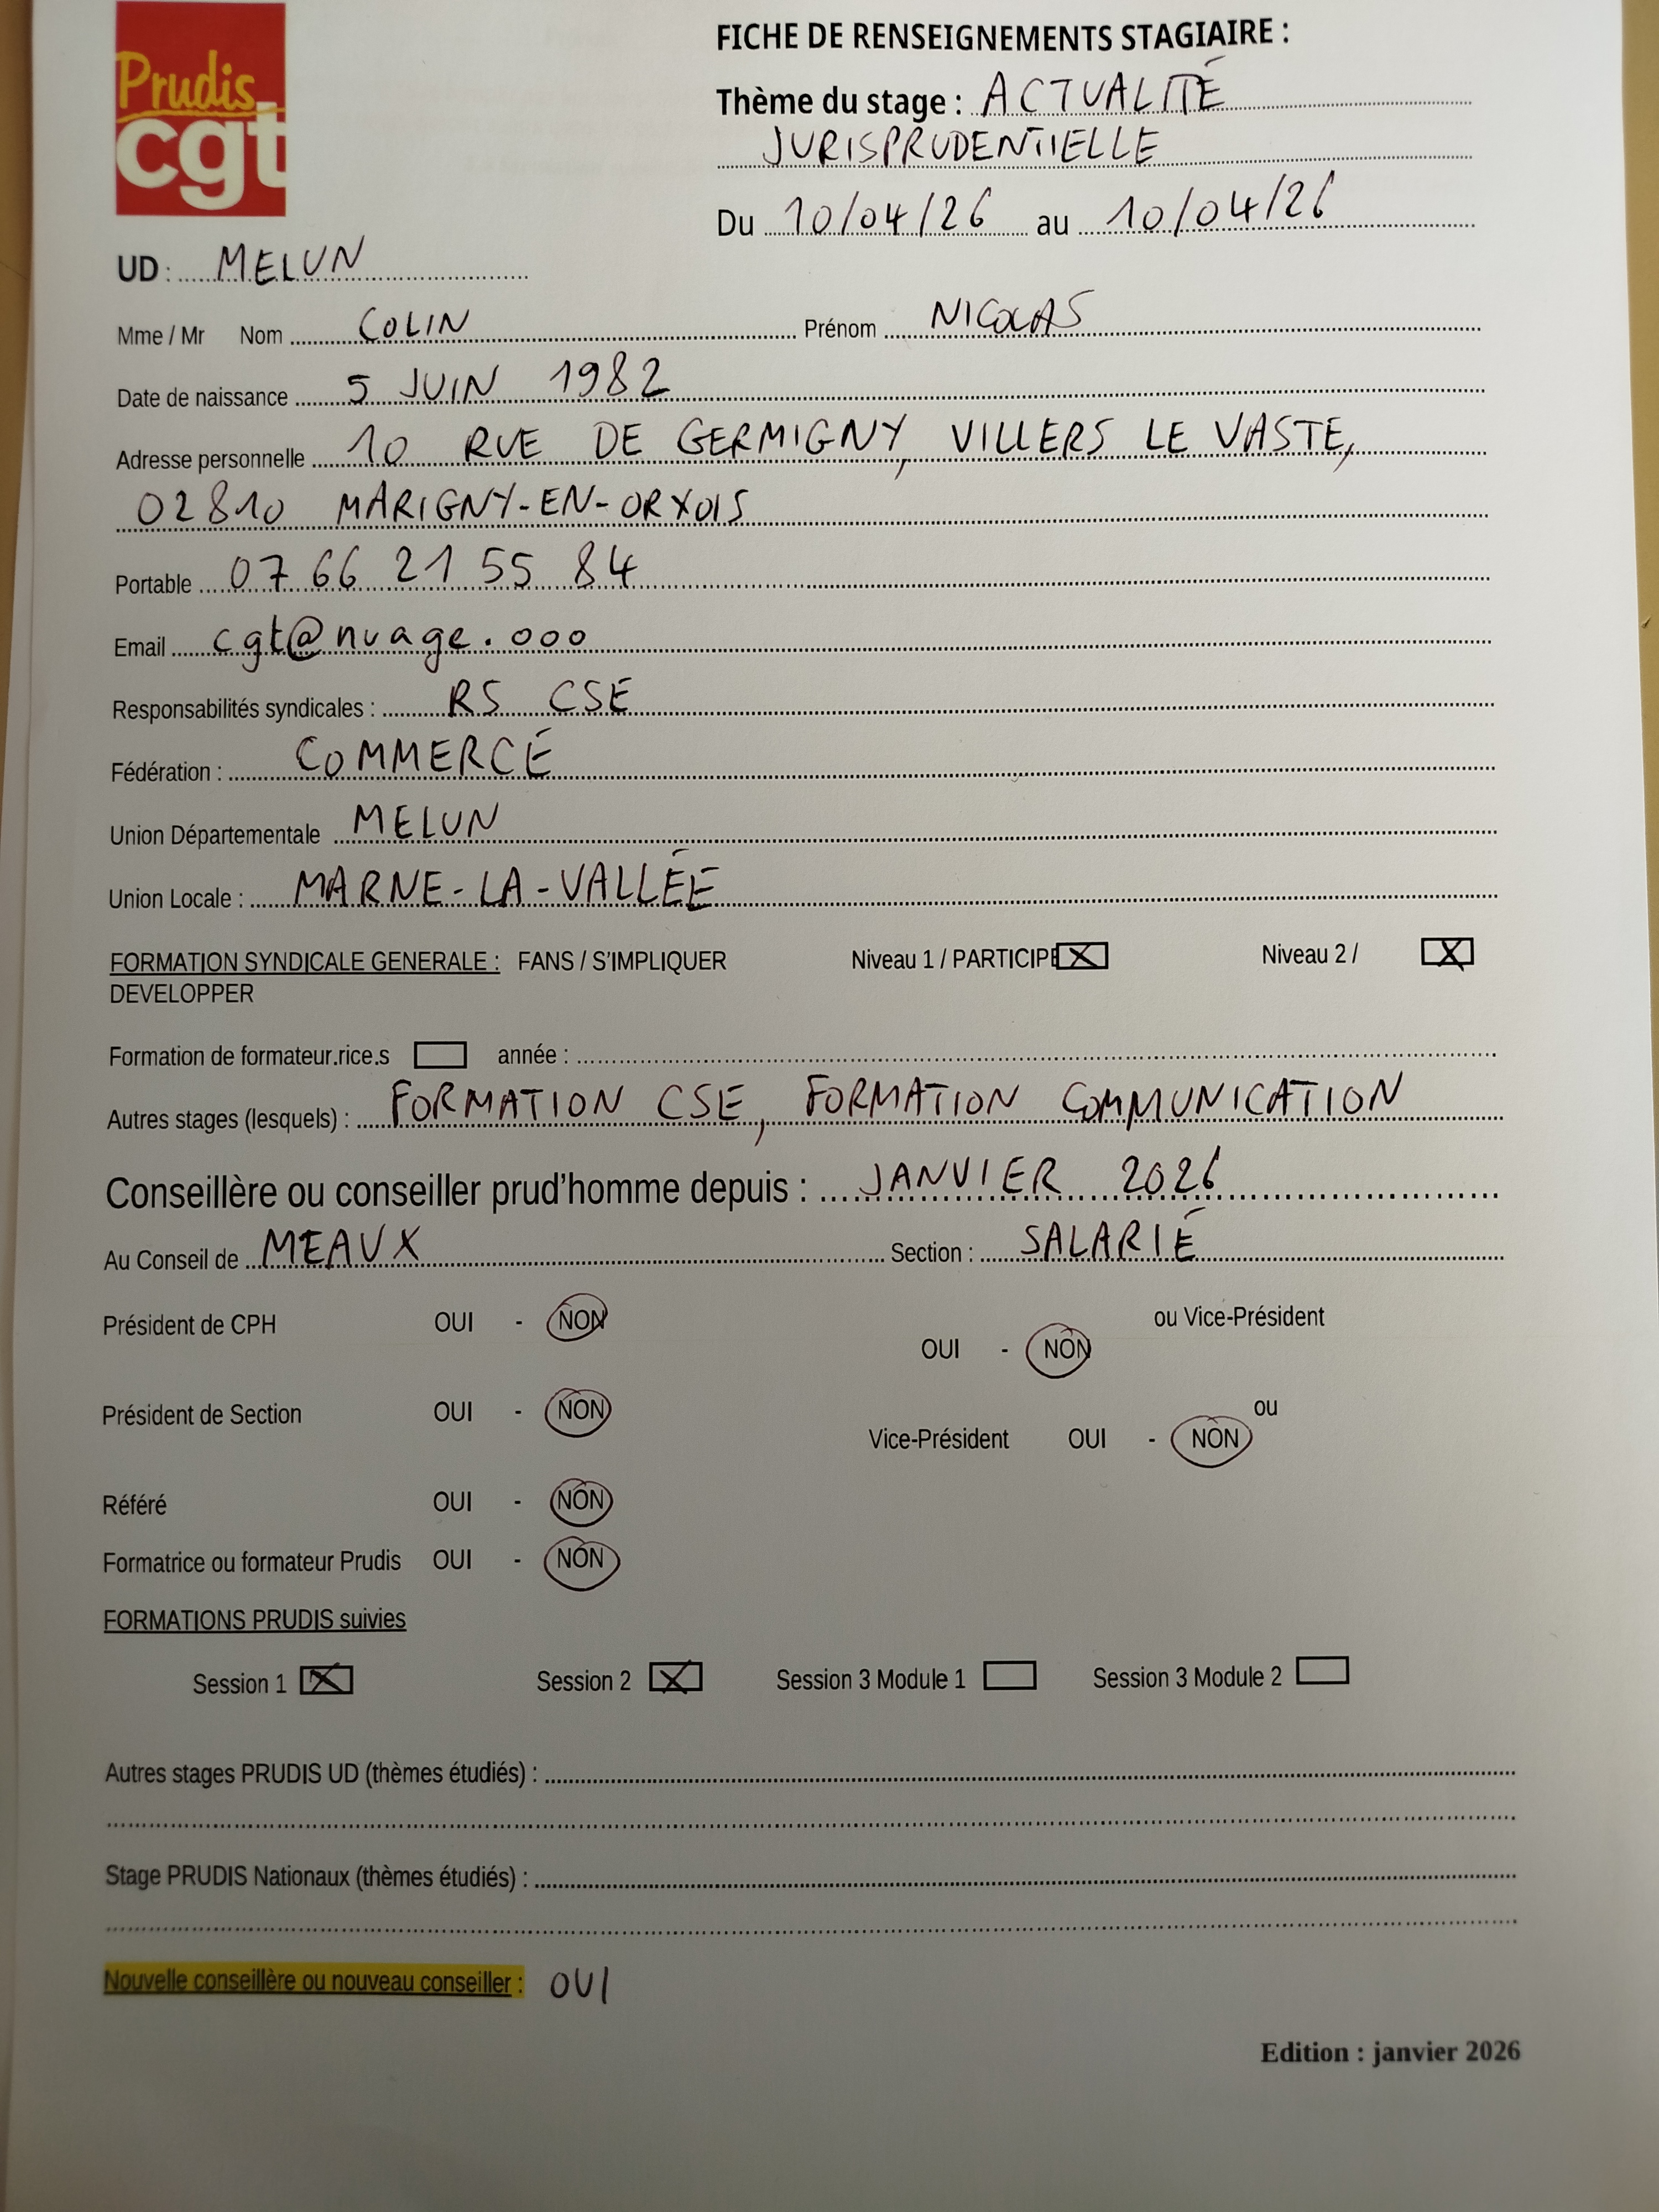 Prudis
cgt
FICHE DE RENSEIGNEMENTS STAGIAIRE :
Thème du stage : ACTUALITÉ
JURISPRUDENTIELLE
Du 10/04/26 au 10/04/26
UD : MELUN
Mme / Mr Nom COLIN Prénom NICOLAS
Date de naissance 5 JUIN 1982
Adresse personnelle 10 RUE DE GERMIGNY, VILLERS LE VASTE,
02810 MARIGNY-EN-ORXOIS
Portable 07 66 21 55 84
Email cgt@nuage.ooo
Responsabilités syndicales : RS CSE
Fédération : COMMERCE
Union Départementale MELUN
Union Locale : MARNE-LA-VALLÉE
FORMATION SYNDICALE GENERALE : FANS / S'IMPLIQUER Niveau 1 / PARTICIPE X Niveau 2 / X
DEVELOPPER
Formation de formateur.rice.s année :
Autres stages (lesquels) : FORMATION CSE, FORMATION COMMUNICATION
Conseillère ou conseiller prud'homme depuis : JANVIER 2026
Au Conseil de MEAUX Section : SALARIÉ
Président de CPH OUI - NON ou Vice-Président
OUI - NON
Président de Section OUI - NON ou
Vice-Président OUI - NON
Référé OUI - NON
Formatrice ou formateur Prudis OUI - NON
FORMATIONS PRUDIS suivies
Session 1 X Session 2 X Session 3 Module 1 Session 3 Module 2
Autres stages PRUDIS UD (thèmes étudiés) :
Stage PRUDIS Nationaux (thèmes étudiés) :
Nouvelle conseillère ou nouveau conseiller : OUI
Edition : janvier 2026